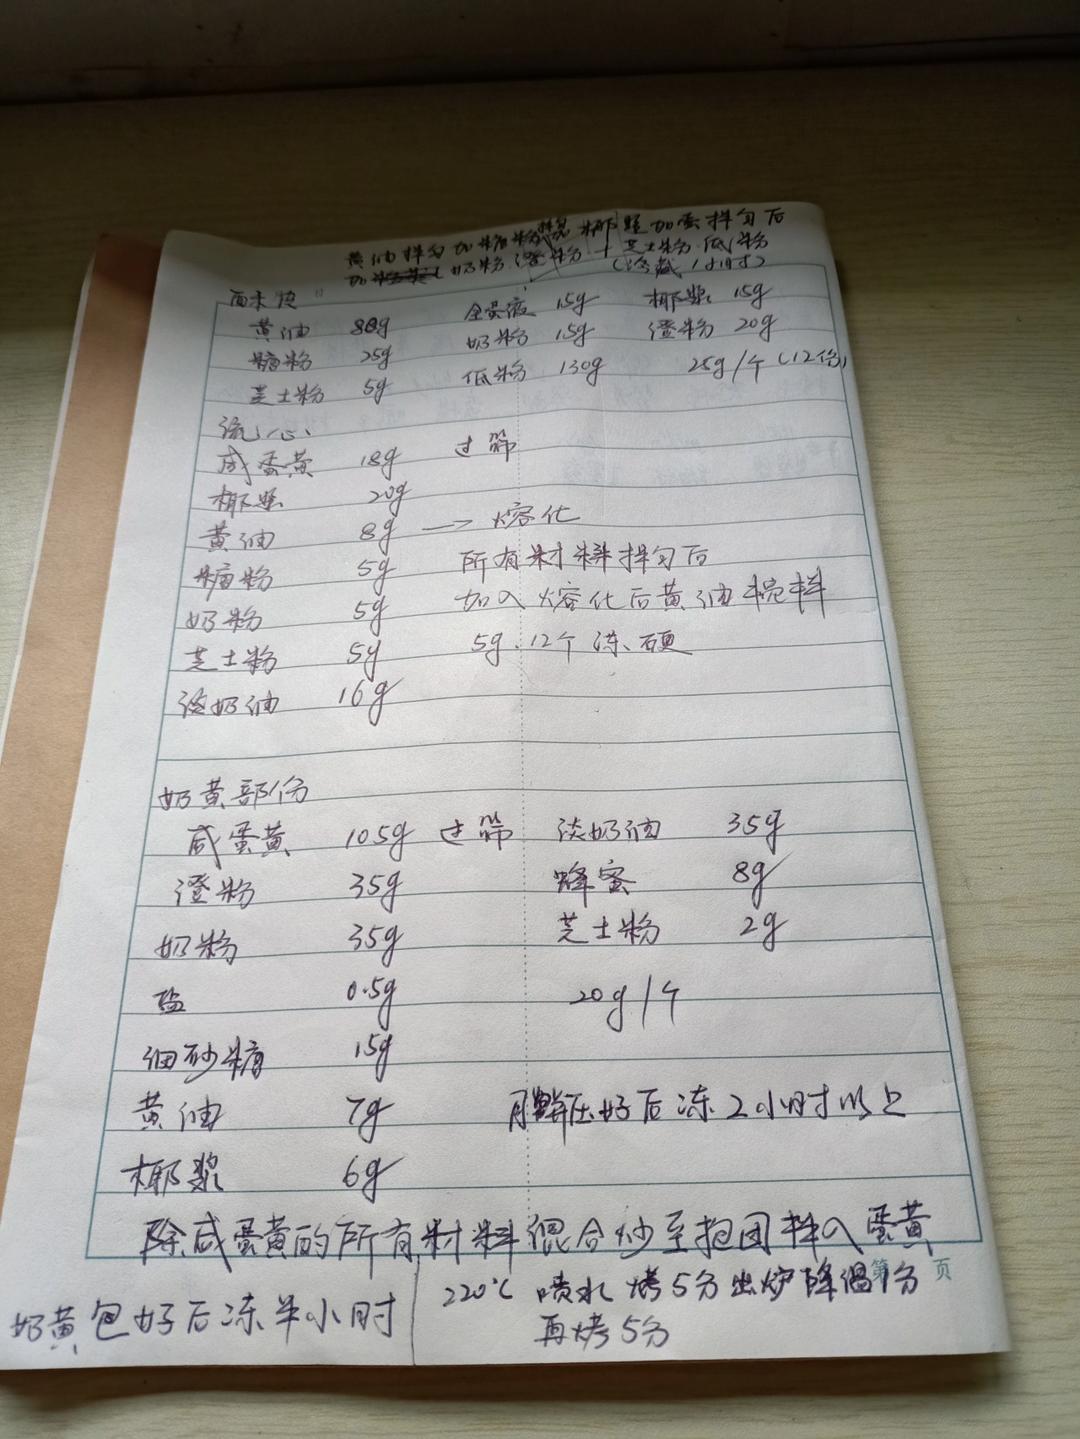 黄油拌匀加糖粉 椰浆加蛋拌匀后
加 奶粉 澄粉+芝士粉 低粉
(冷藏1小时)
黄油 80g 全蛋液 15g 椰浆 15g
糖粉 25g 奶粉 15g 澄粉 20g
芝士粉 5g 低粉 130g 25g/个(12份)
流心
咸蛋黄 18g 过筛
椰浆 20g
黄油 8g → 熔化
糖粉 5g 所有材料拌匀后
奶粉 5g 加入熔化后黄油搅拌
芝士粉 5g 5g.12个冻硬
淡奶油 16g
奶黄部份
咸蛋黄 105g 过筛 淡奶油 35g
澄粉 35g 蜂蜜 8g
奶粉 35g 芝士粉 2g
盐 0.5g 20g/个
细砂糖 15g
黄油 7g 月饼压好后冻2小时以上
椰浆 6g
除咸蛋黄的所有材料混合炒至抱团拌入蛋黄
第 页
220℃ 喷水 烤5分出炉降温1分
奶黄包好后冻半小时
再烤5分